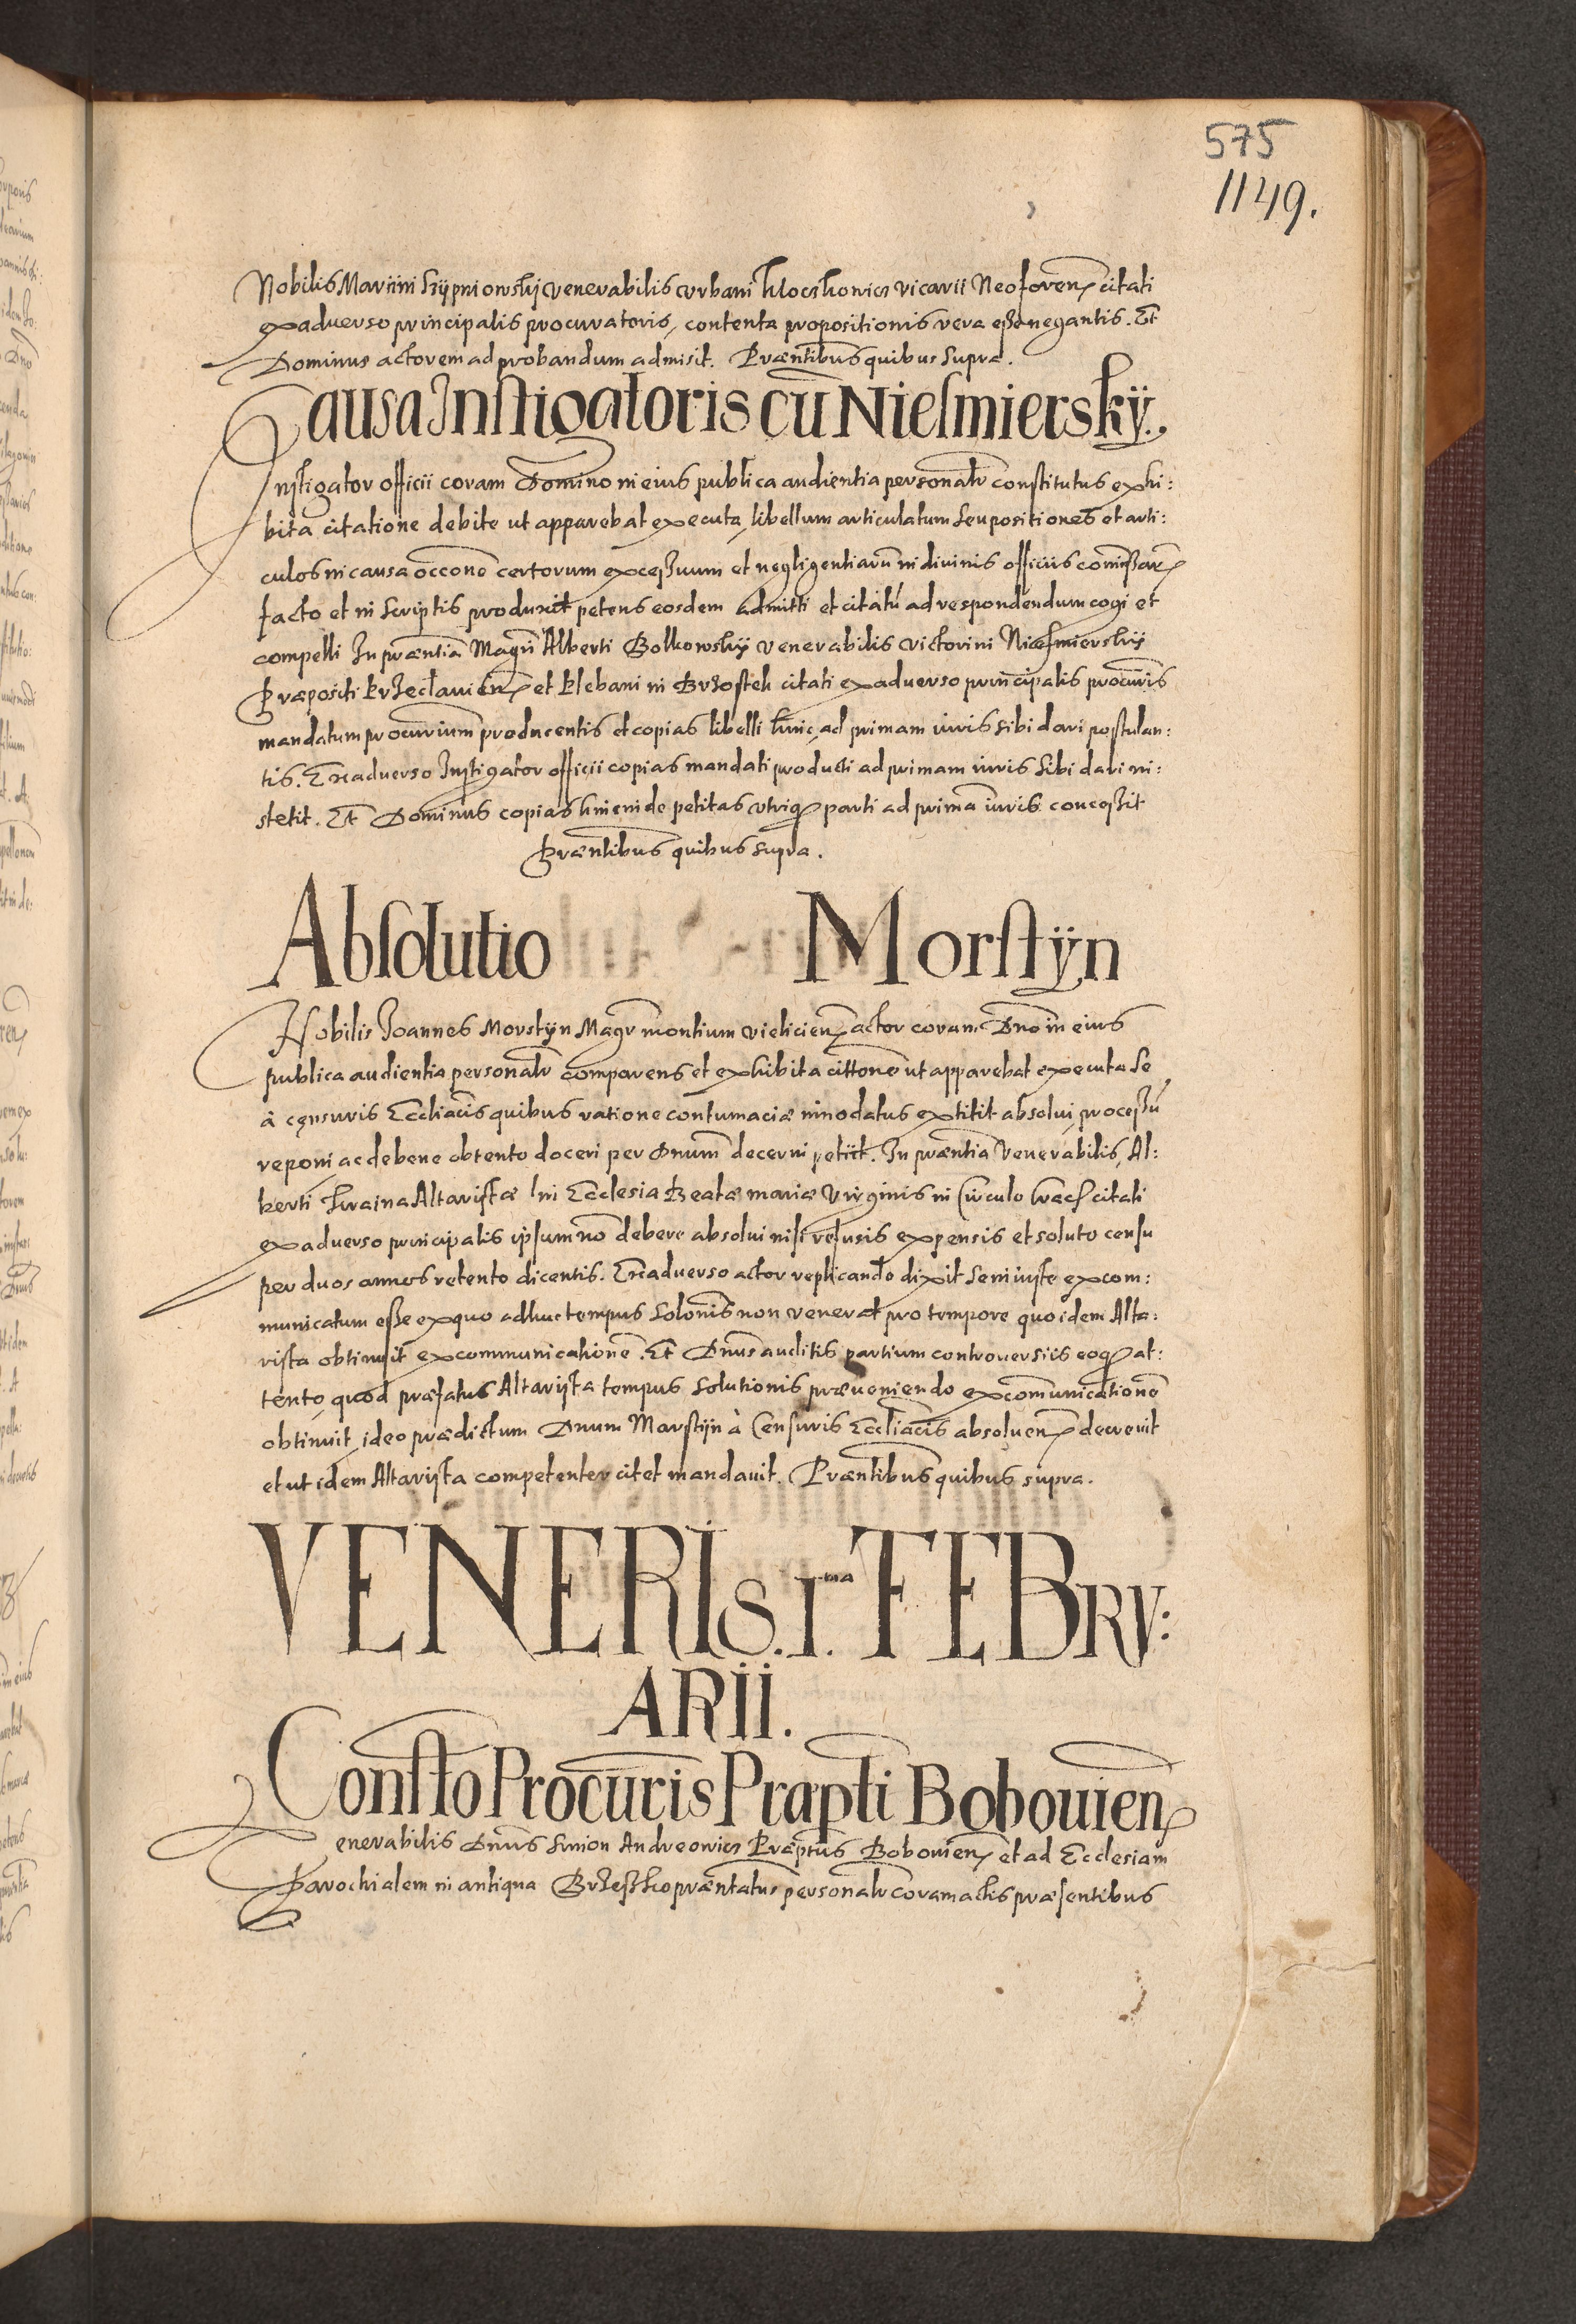 575
1149.
Nobilis Martini Szÿpniowskÿ venerabilis Urbani Kloczkowicz vicarii Neoforen̄ citati
ex adverso principalis procuratoris, contenta propositionis vera esse negantis. Et
Dominus actorem ad probandum admisit. Præn̄tibus quibus supra.
Causa Instigatoris cū Niesmierskÿ.
Instigator officii coram Domino in eius publica audientia personalr̄ constitutus exhi:
bita citatione debite ut apparebat executa, libellum articulatum seu positiones et arti:
culos in causa occ̄one certorum excessuum et negligentiarū in divinis officiis com̄issar̄
facto et in scriptis produxit petens eosdem admitti et citatū ad respondendum cogi et
compelli In præn̄tia Magr̄i Alberti Bolkowskÿ venerabilis Victorini Niesmierskÿ
Præpositi Krzeclavien̄ et plebani in Brzostek citati ex adverso principalis procur̄is
mandatum procur̄ium producentis et copias libelli huic, ad primam iuris sibi dari postulan:
tis. Ex adverso Instigator officii copias mandati producti ad primam iuris sibi dari in:
stetit. Et Dominus copias hincinde petitas utriq̄ parti ad primā iuris concessit
Præn̄tibus quibus supra.
Absolutio Morstÿn
Nobilis Joannes Morstÿn Magr̄ montium Vielicien̄ actor coram Dn̄o in eius
publica audientia personalr̄ comparens et exhibita citt̄one ut apparebat executa se
à censuris Eccl̄iacis quibus ratione contumaciæ innodatus extitit absolui, processū
reponi ac de bene obtento doceri per Dnum̄ decerni petiit. In præn̄tia Venerabilis Al:
berti Kraina Altaristæ in Ecclesia Beatæ mariæ Virginis in Circulo Crac̄ citati
ex adverso principalis ipsum nō debere absolui nisi refusis expensis et soluto censu
per duos annos retento dicentis. Ex adverso actor replicando dixit se iniuste excom:
municatum esse ex quo adhuc tempus solōnis non venerat pro tempore quo idem Alta:
rista obtinuit excommunicationē. Et Dn̄us auditis partium controversiis eoq̄ at:
tento, quod præfatus Altarista tempus solutionis præveniendo excomunicationē
obtinuit, ideo prædictum Dnum Morstÿn à Censuris Eccl̄iacis absoluen̄ decrevit
et ut idem Altarista competenter citet mandavit. Præn̄tibus quibus supra.
VENERIS. 1.ma FEBRV:
ARII.
Constto Procuris Præpti Bobovien̄
Venerabilis Dn̄us Simon Andreowicz Præptus Bobovien̄ et ad Ecclesiam
Parochialem in antiqua Brzessko præn̄tatus personalr̄ coram actis præsentibus